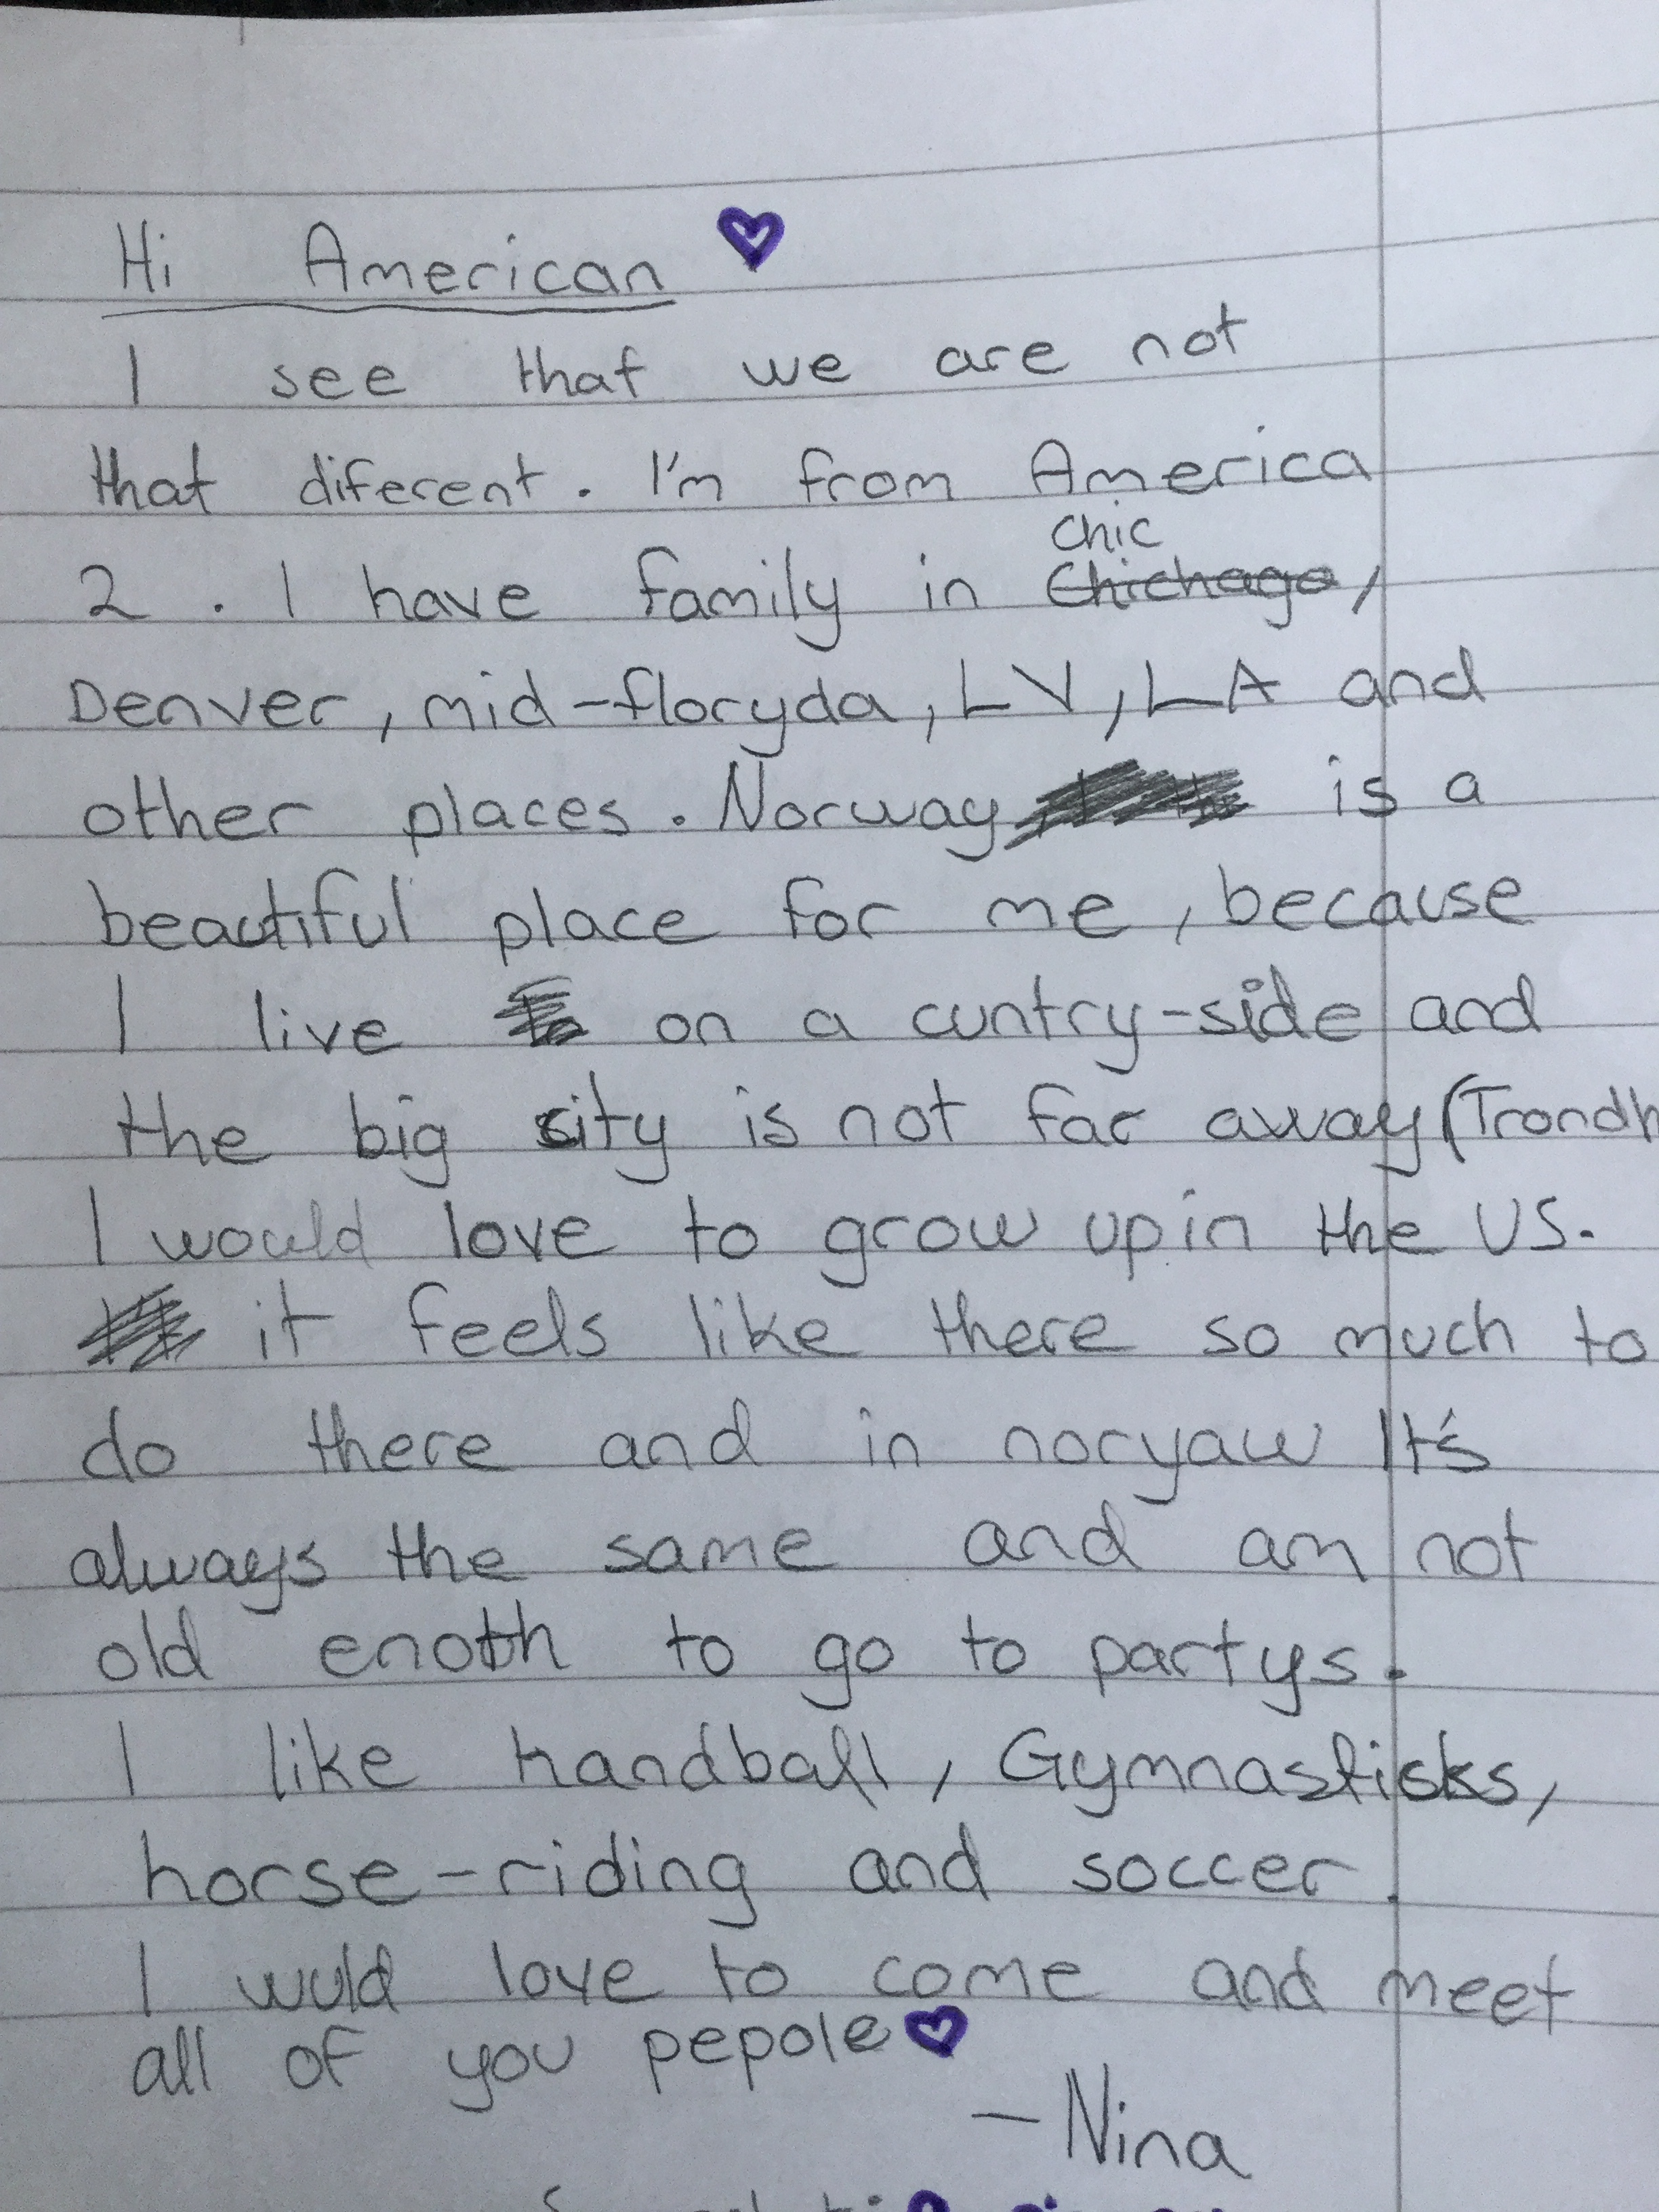 Hi American
I see that we are not
that diferent. I'm from America
Chic
2 . I have family in Chichago,
Denver, mid-floryda, LV, LA and
other places. Norway is a
beautiful place for me, because
I live on a cuntry-side and
the big city is not far away (Trondh
I would love to grow up in the US.
it feels like there so much to
do there and in noryaw It's
always the same and am not
old enoth to go to partys.
I like handball, Gymnasticks,
horse-riding and soccer.
I wuld love to come and meet
all of you pepole
- Nina